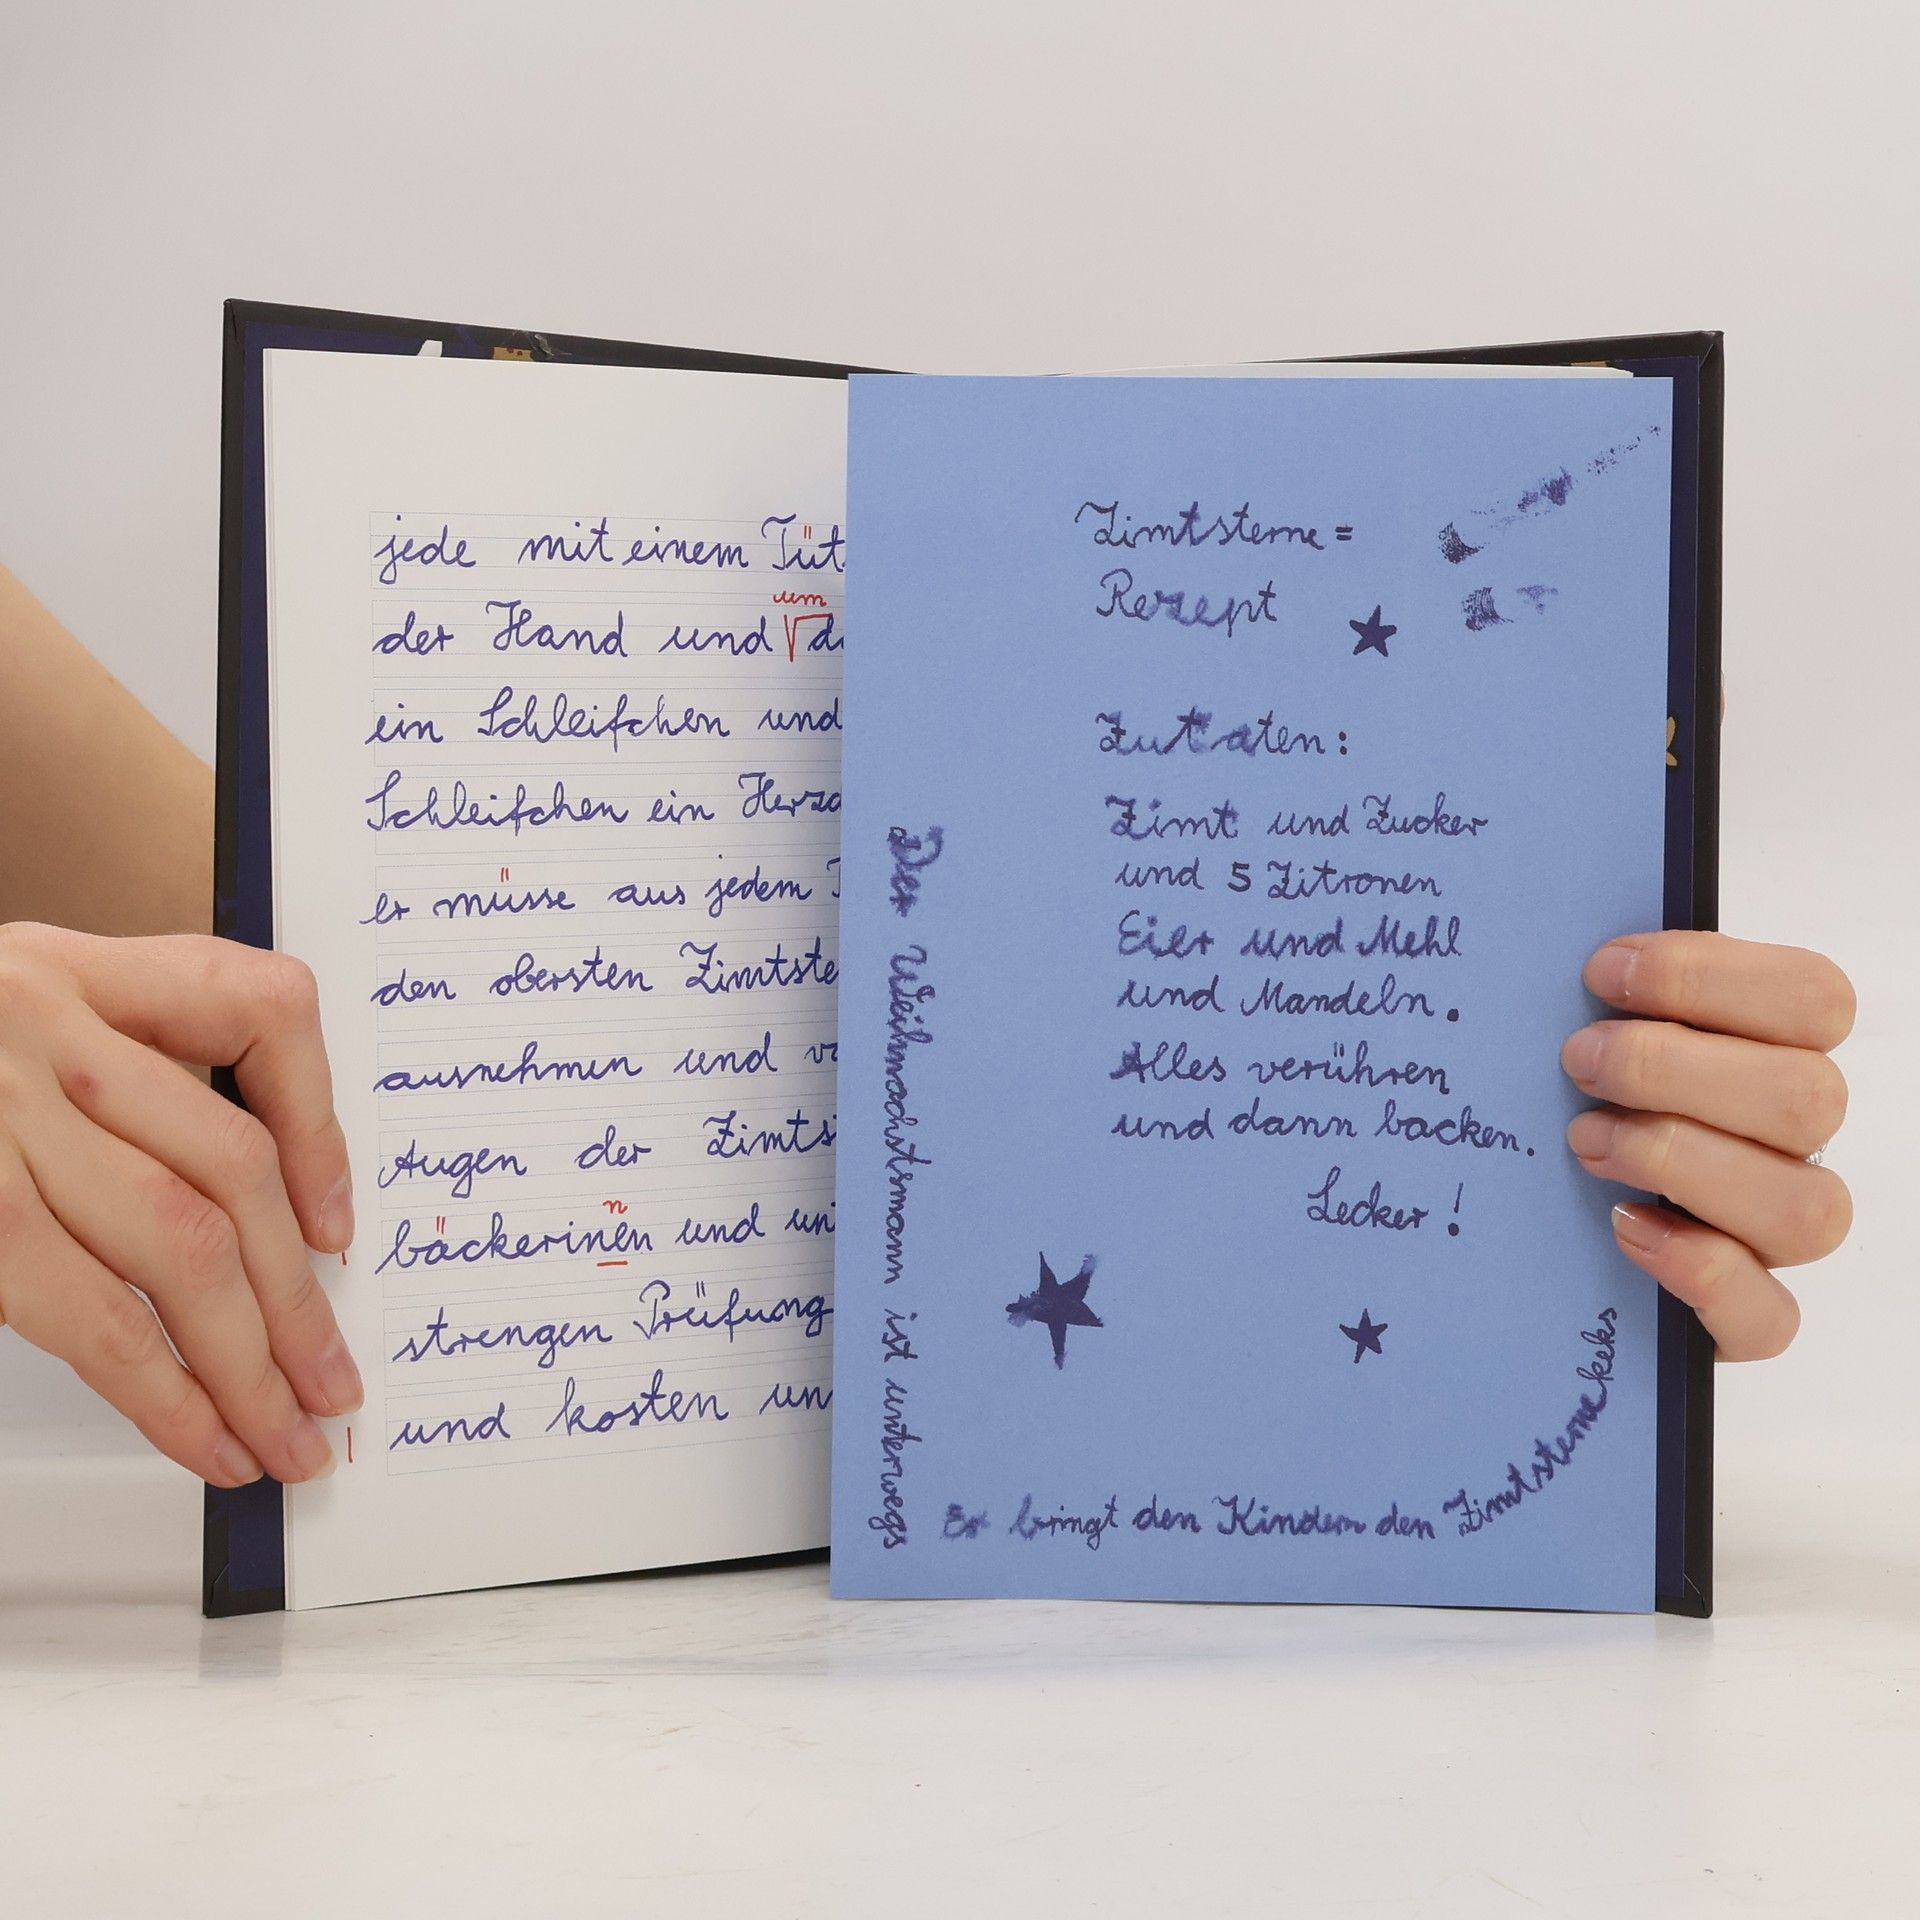 jede mit einem Tüt
um
der Hand und
ein Schleifchen und
Schleifchen ein Herzc
er müsse aus jedem
den obersten Zimtste
ausnehmen und vo
Augen der Zimts
n
bäckerinen und un
strengen Prüfung
und kosten un
Zimtsterne=
Rezept
Zutaten:
Zimt und Zucker
und 5 Zitronen
Eier und Mehl
und Mandeln.
Alles verühren
und dann backen.
Lecker!
Der Weihnachstsmann ist unterwegs
Er bringt den Kindern den Zimtsternekeks